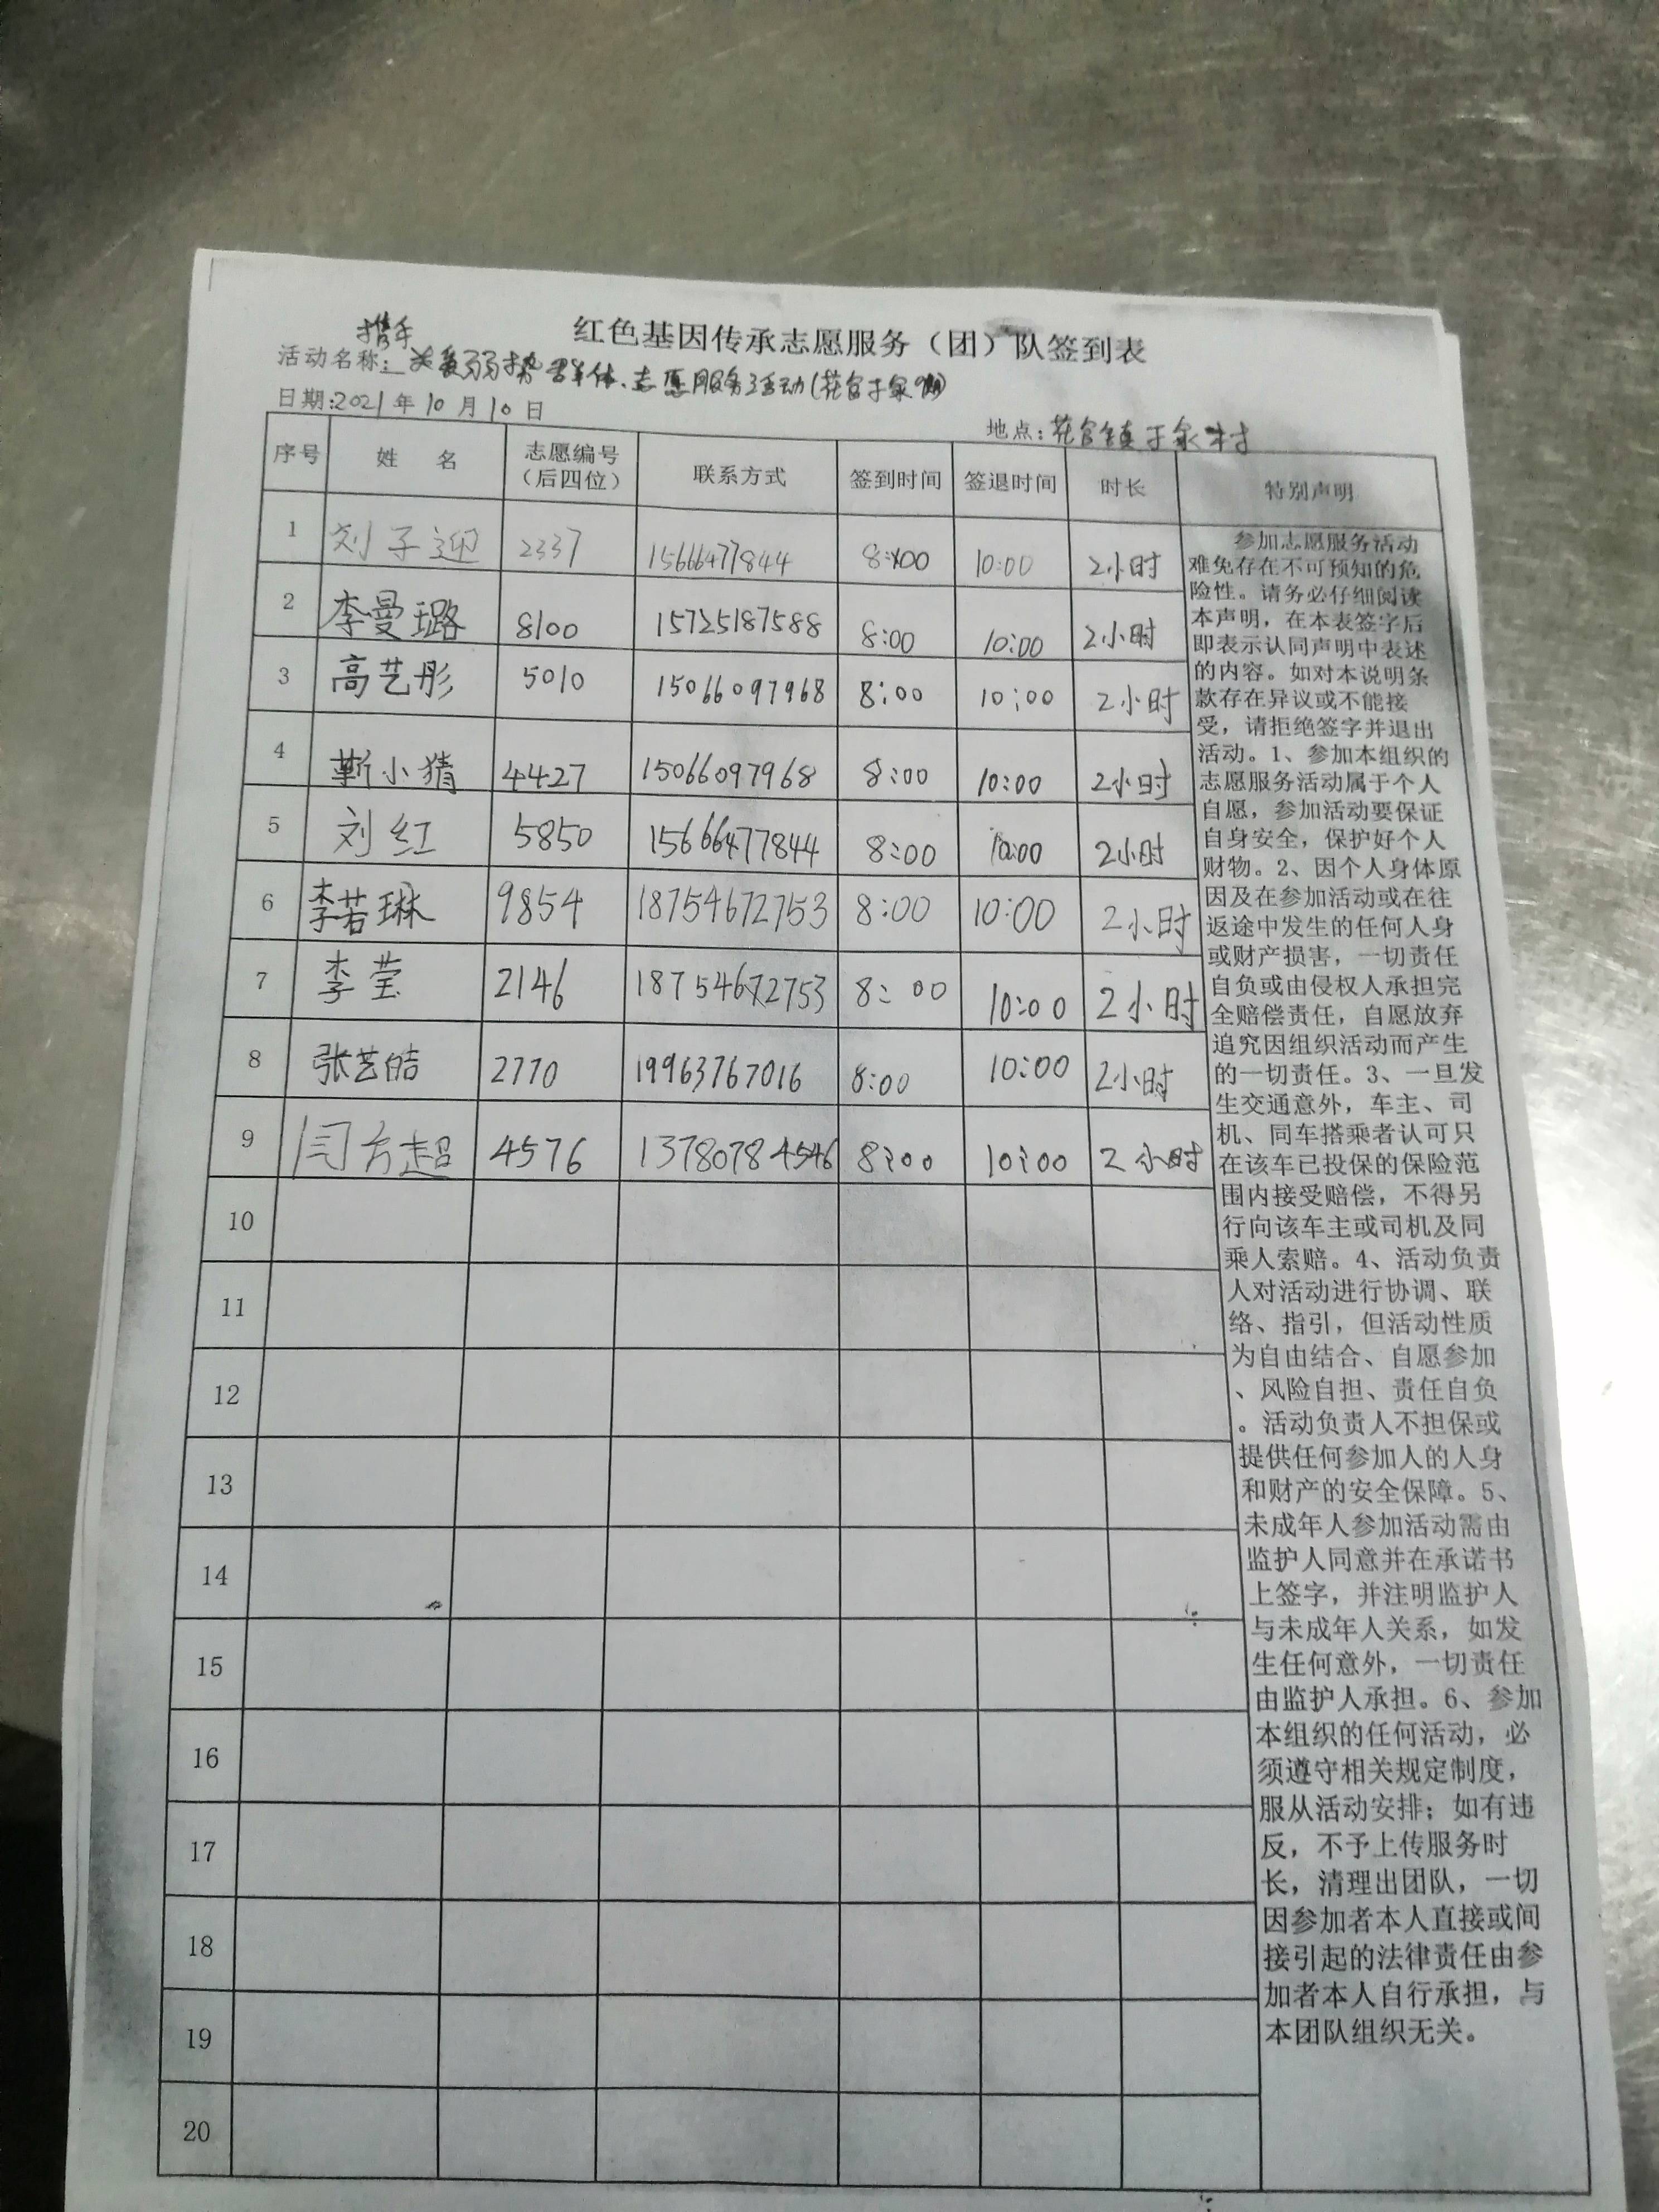 红色基因传承志愿服务（团）队签到表
携手
活动名称：关爱弱势群体、志愿服务活动(花官于家
日期:2021年10月10日
地点:花官镇于家村
序号 姓 名 志愿编号（后四位） 联系方式 签到时间 签退时间 时长 特别声明
1 刘子迎 2337 15666477844 8:00 10:00 2小时
2 李曼璐 8100 15725187588 8:00 10:00 2小时
3 高艺彤 5010 15066097968 8:00 10:00 2小时
4 靳小猜 4427 15066097968 8:00 10:00 2小时
5 刘红 5850 15666477844 8:00 10:00 2小时
6 李若琳 9854 18754672753 8:00 10:00 2小时
7 李莹 2146 18754672753 8:00 10:00 2小时
8 张艺皓 2770 19963767016 8:00 10:00 2小时
9 闫方超 4576 13780784546 8:00 10:00 2小时
10
11
12
13
14
15
16
17
18
19
20
参加志愿服务活动
难免存在不可预知的危
险性。请务必仔细阅读
本声明，在本表签字后
即表示认同声明中表述
的内容。如对本说明条
款存在异议或不能接
受，请拒绝签字并退出
活动。1、参加本组织的
志愿服务活动属于个人
自愿，参加活动要保证
自身安全，保护好个人
财物。2、因个人身体原
因及在参加活动或在往
返途中发生的任何人身
或财产损害，一切责任
自负或由侵权人承担完
全赔偿责任，自愿放弃
追究因组织活动而产生
的一切责任。3、一旦发
生交通意外，车主、司
机、同车搭乘者认可只
在该车已投保的保险范
围内接受赔偿，不得另
行向该车主或司机及同
乘人索赔。4、活动负责
人对活动进行协调、联
络、指引，但活动性质
为自由结合、自愿参加
、风险自担、责任自负
。活动负责人不担保或
提供任何参加人的人身
和财产的安全保障。5、
未成年人参加活动需由
监护人同意并在承诺书
上签字，并注明监护人
与未成年人关系，如发
生任何意外，一切责任
由监护人承担。6、参加
本组织的任何活动，必
须遵守相关规定制度，
服从活动安排；如有违
反，不予上传服务时
长，清理出团队，一切
因参加者本人直接或间
接引起的法律责任由参
加者本人自行承担，与
本团队组织无关。